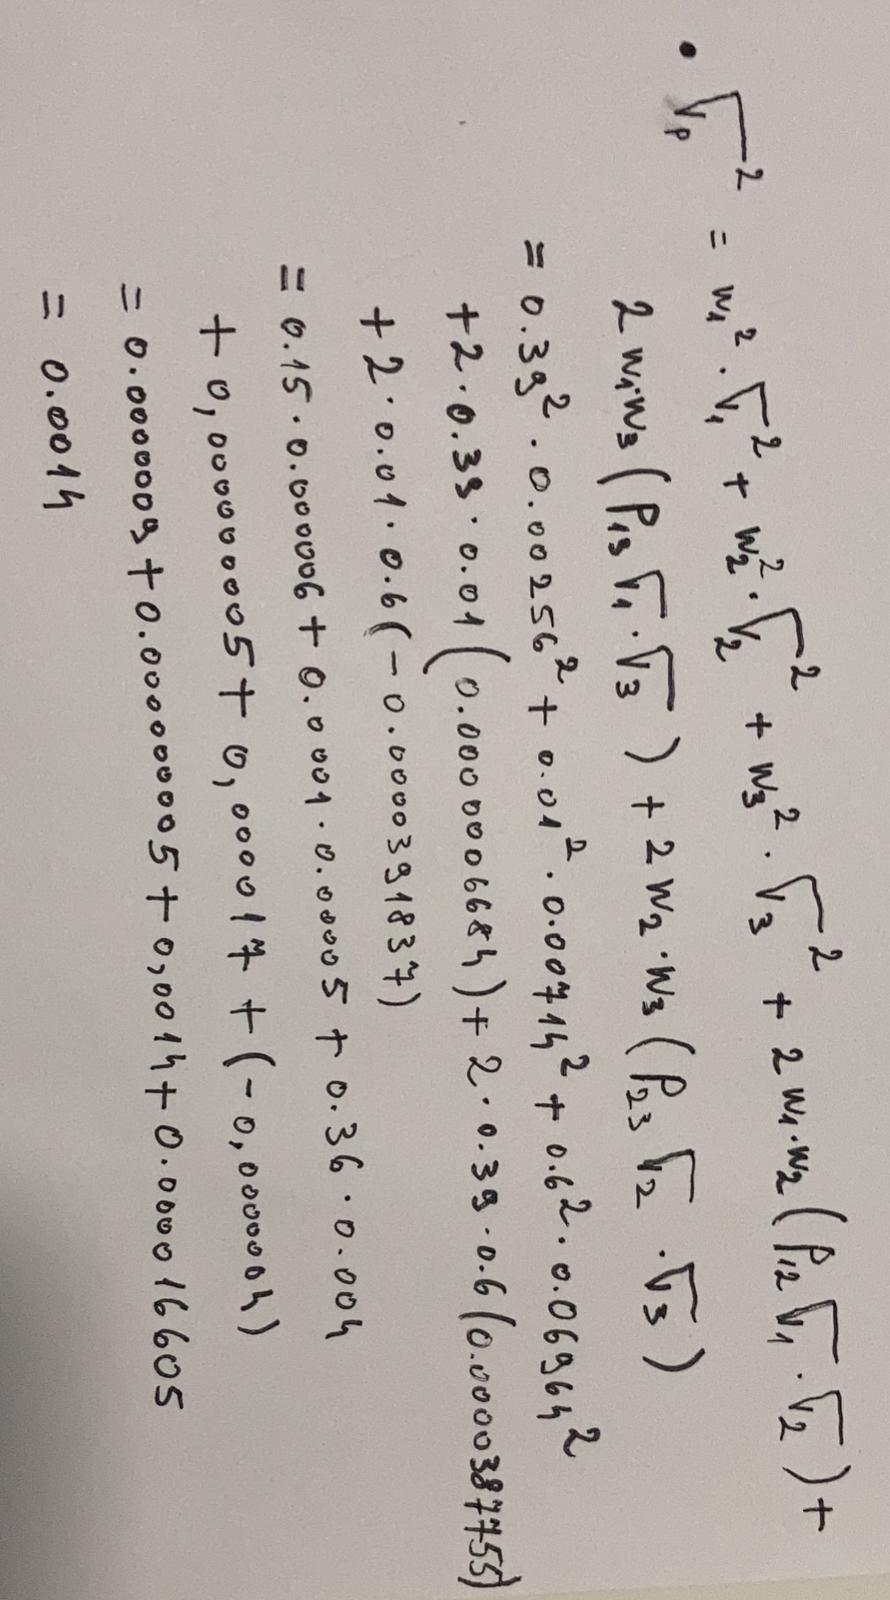 • σp² = w₁² · σ₁² + w₂² · σ₂² + w₃² · σ₃² + 2 w₁·w₂ (ρ₁₂ σ₁ · σ₂) +
2 w₁·w₃ (ρ₁₃ σ₁ · σ₃) + 2 w₂ · w₃ (ρ₂₃ σ₂ · σ₃)
= 0.39² · 0.00256² + 0.01² · 0.00714² + 0.6² · 0.06964²
+ 2 · 0.39 · 0.01 (0.0000006684) + 2 · 0.39 · 0.6 (0.0000387755)
+ 2 · 0.01 · 0.6 (-0.0000391837)
= 0.15 · 0.000006 + 0.0001 · 0.00005 + 0.36 · 0.004
+ 0,000000005 + 0,000017 + (-0,0000004)
= 0.0000009 + 0.000000005 + 0,0014 + 0.000016605
= 0.0014